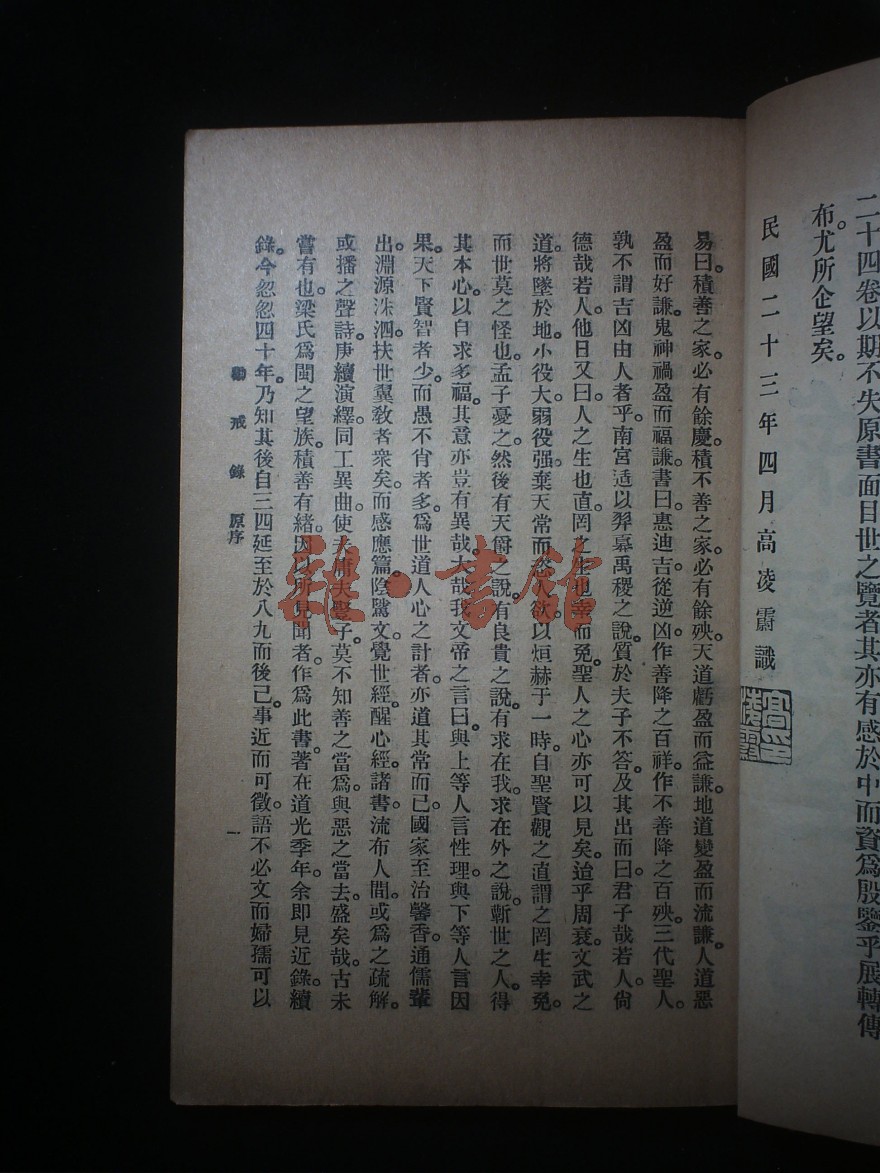 二十四卷以期不失原書面目世之覽者其亦有感於中而資爲殷鑒乎展轉傳
布。尤所企望矣。
民國二十三年四月高凌霨識
易曰。積善之家。必有餘慶。積不善之家。必有餘殃。天道虧盈而益謙。地道變盈而流謙。人道惡
盈而好謙。鬼神禍盈而福謙。書曰。惠迪吉。從逆凶。作善降之百祥。作不善降之百殃。三代聖人。
孰不謂吉凶由人者乎。南宮适以羿奡禹稷之說。質於夫子不答。及其出而曰。君子哉若人。尙
德哉若人。他日又曰。人之生也直。罔之生也幸而免。聖人之心亦可以見矣。迨乎周衰。文武之
道。將墜於地。小役大。弱役强。棄天常而恣人欲。以烜赫于一時。自聖賢觀之。直謂之罔生幸免。
而世莫之怪也。孟子憂之。然後有天爵之說。有良貴之說。有求在我。求在外之說。斬世之人。得
其本心。以自求多福。其意亦豈有異哉。大哉我文帝之言曰。與上等人言性理。與下等人言因
果。天下賢智者少。而愚不肖者多。爲世道人心之計者。亦道其常而已。國家至治馨香。通儒輩
出。淵源洙泗。扶世翼敎者衆矣。而感應篇。陰騭文。覺世經。醒心經。諸書。流布人間。或爲之疏解。
或播之聲詩。庚續演繹。同工異曲。使夫庸夫豎子。莫不知善之當爲。與惡之當去。盛矣哉。古未
嘗有也。梁氏爲閩之望族。積善有緒。因以所見聞者。作爲此書。著在道光季年。余即見近錄。續
錄。今忽忽四十年。乃知其後自三四延至於八九而後已。事近而可徵。語不必文而婦孺可以
勸戒錄 原序 一
雜·書館